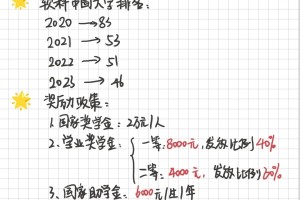 软科中国大学排名:
2020 → 83
2021 → 53
2022 → 51
2023 → 46
奖励政策:
1.国家奖学金: 2万元/人
2.学业奖学金: 一等: 8000元, 发放比例 40%
二等: 4000元, 发放比例 30%
3.国家助学金: 6000元/生/年